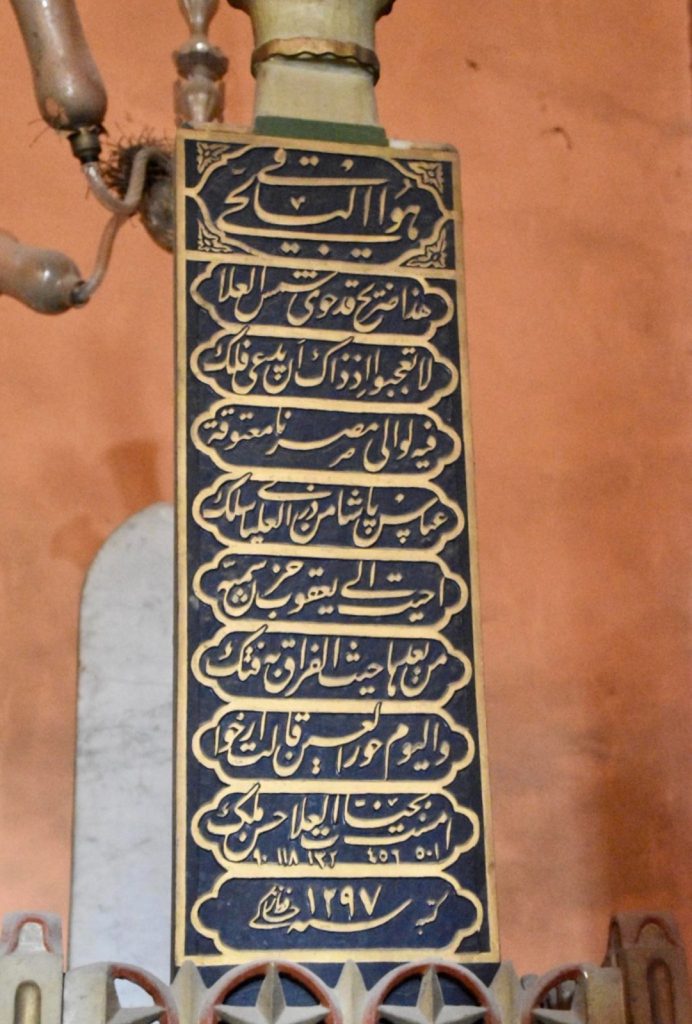 هو الحي الباقي
هذا ضريح قد حوى شمس العلا
لا تعجبوا اذ ذاك ان يدعى فلك
فيه لوالى مصرنا معتوقة
عباس پاشا من ذرى العليا سلك
احيت الى يعقوب حزن سميه
من بعدها حيث الفراق به فتك
واليوم حور العين قالت ارخوا
امست بجينات العلا حسن ملك
٥٠١ ٤٥٦ ١٣٢ ١١٨ ٩٠
كتبه سنة ١٢٩٧